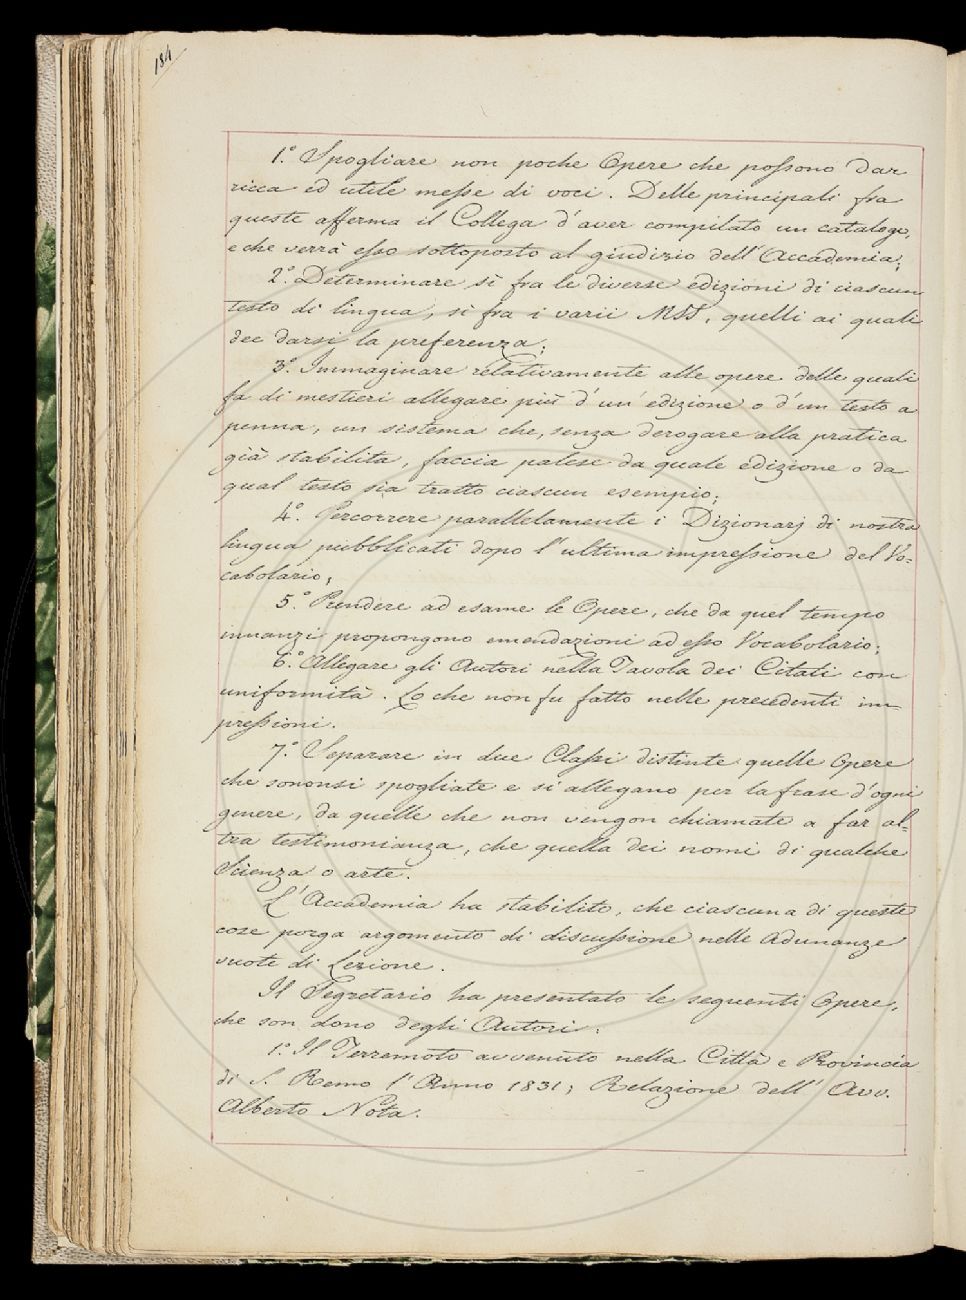 184
1.° Spogliare non poche Opere che possono dar
ricca ed utile messe di voci. Delle principali fra
queste afferma il Collega d'aver compilato un catalogo,
e che verrà esso sottoposto al giudizio dell'Accademia;
2.° Determinare sì fra le diverse edizioni di ciascun
testo di lingua, sì fra i varii MSS. quelli ai quali
dee darsi la preferenza;
3.° Immaginare relativamente alle opere delle quali
fa di mestieri allegare più d'un'edizione o d'un testo a
penna, un sistema che, senza derogare alla pratica
già stabilita, faccia palese da quale edizione o da
qual testo sia tratto ciascun esempio;
4.° Percorrere parallelamente i Dizionarj di nostra
lingua pubblicati dopo l'ultima impressione del Vo=
cabolario;
5.° Prendere ad esame le Opere, che da quel tempo
innanzi propongono emendazioni ad esso Vocabolario;
6.° Allegare gli Autori nella Tavola dei Citati con
uniformità. Lo che non fu fatto nelle precedenti im=
pressioni.
7.° Separare in due Classi distinte quelle Opere
che sononsi spogliate e si allegano per la frase d'ogni
genere, da quelle che non vengon chiamate a far al=
tra testimonianza, che quella dei nomi di qualche
Scienza o arte.
L'Accademia ha stabilito, che ciascuna di queste
cose porga argomento di discussione nelle Adunanze
vuote di Lezione.
Il Segretario ha presentato le seguenti Opere,
che son dono degli Autori.
1.° Il Terremoto avvenuto nella Città e Provincia
di S. Remo l'Anno 1831; Relazione dell'Avv.
Alberto Nota.